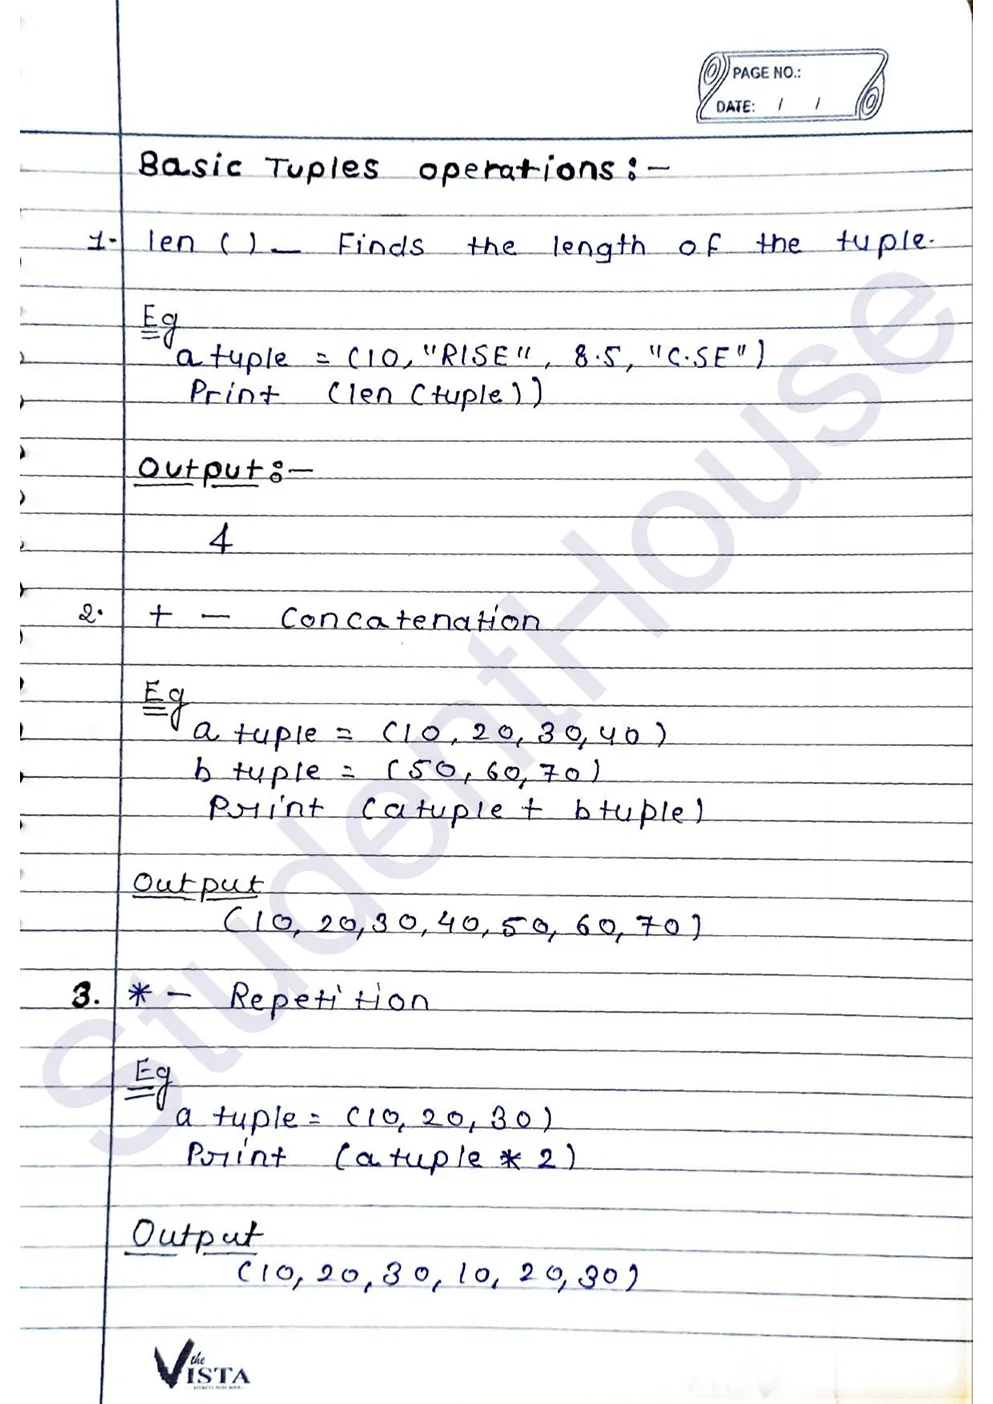 PAGE NO.:
DATE: / /
Basic Tuples operations:-
1. len ( ) - Finds the length of the tuple.
Eg
a tuple = (10, "RISE", 8.5, "C.SE")
Print (len (tuple))
Output:-
4
2. + - Concatenation
Eg
a tuple = (10, 20, 30, 40)
b tuple = (50, 60, 70)
Print (a tuple + b tuple)
Output
(10, 20, 30, 40, 50, 60, 70)
3. * - Repetition
Eg
a tuple = (10, 20, 30)
Print (a tuple * 2)
Output
(10, 20, 30, 10, 20, 30)
the
VISTA
StudentHouse